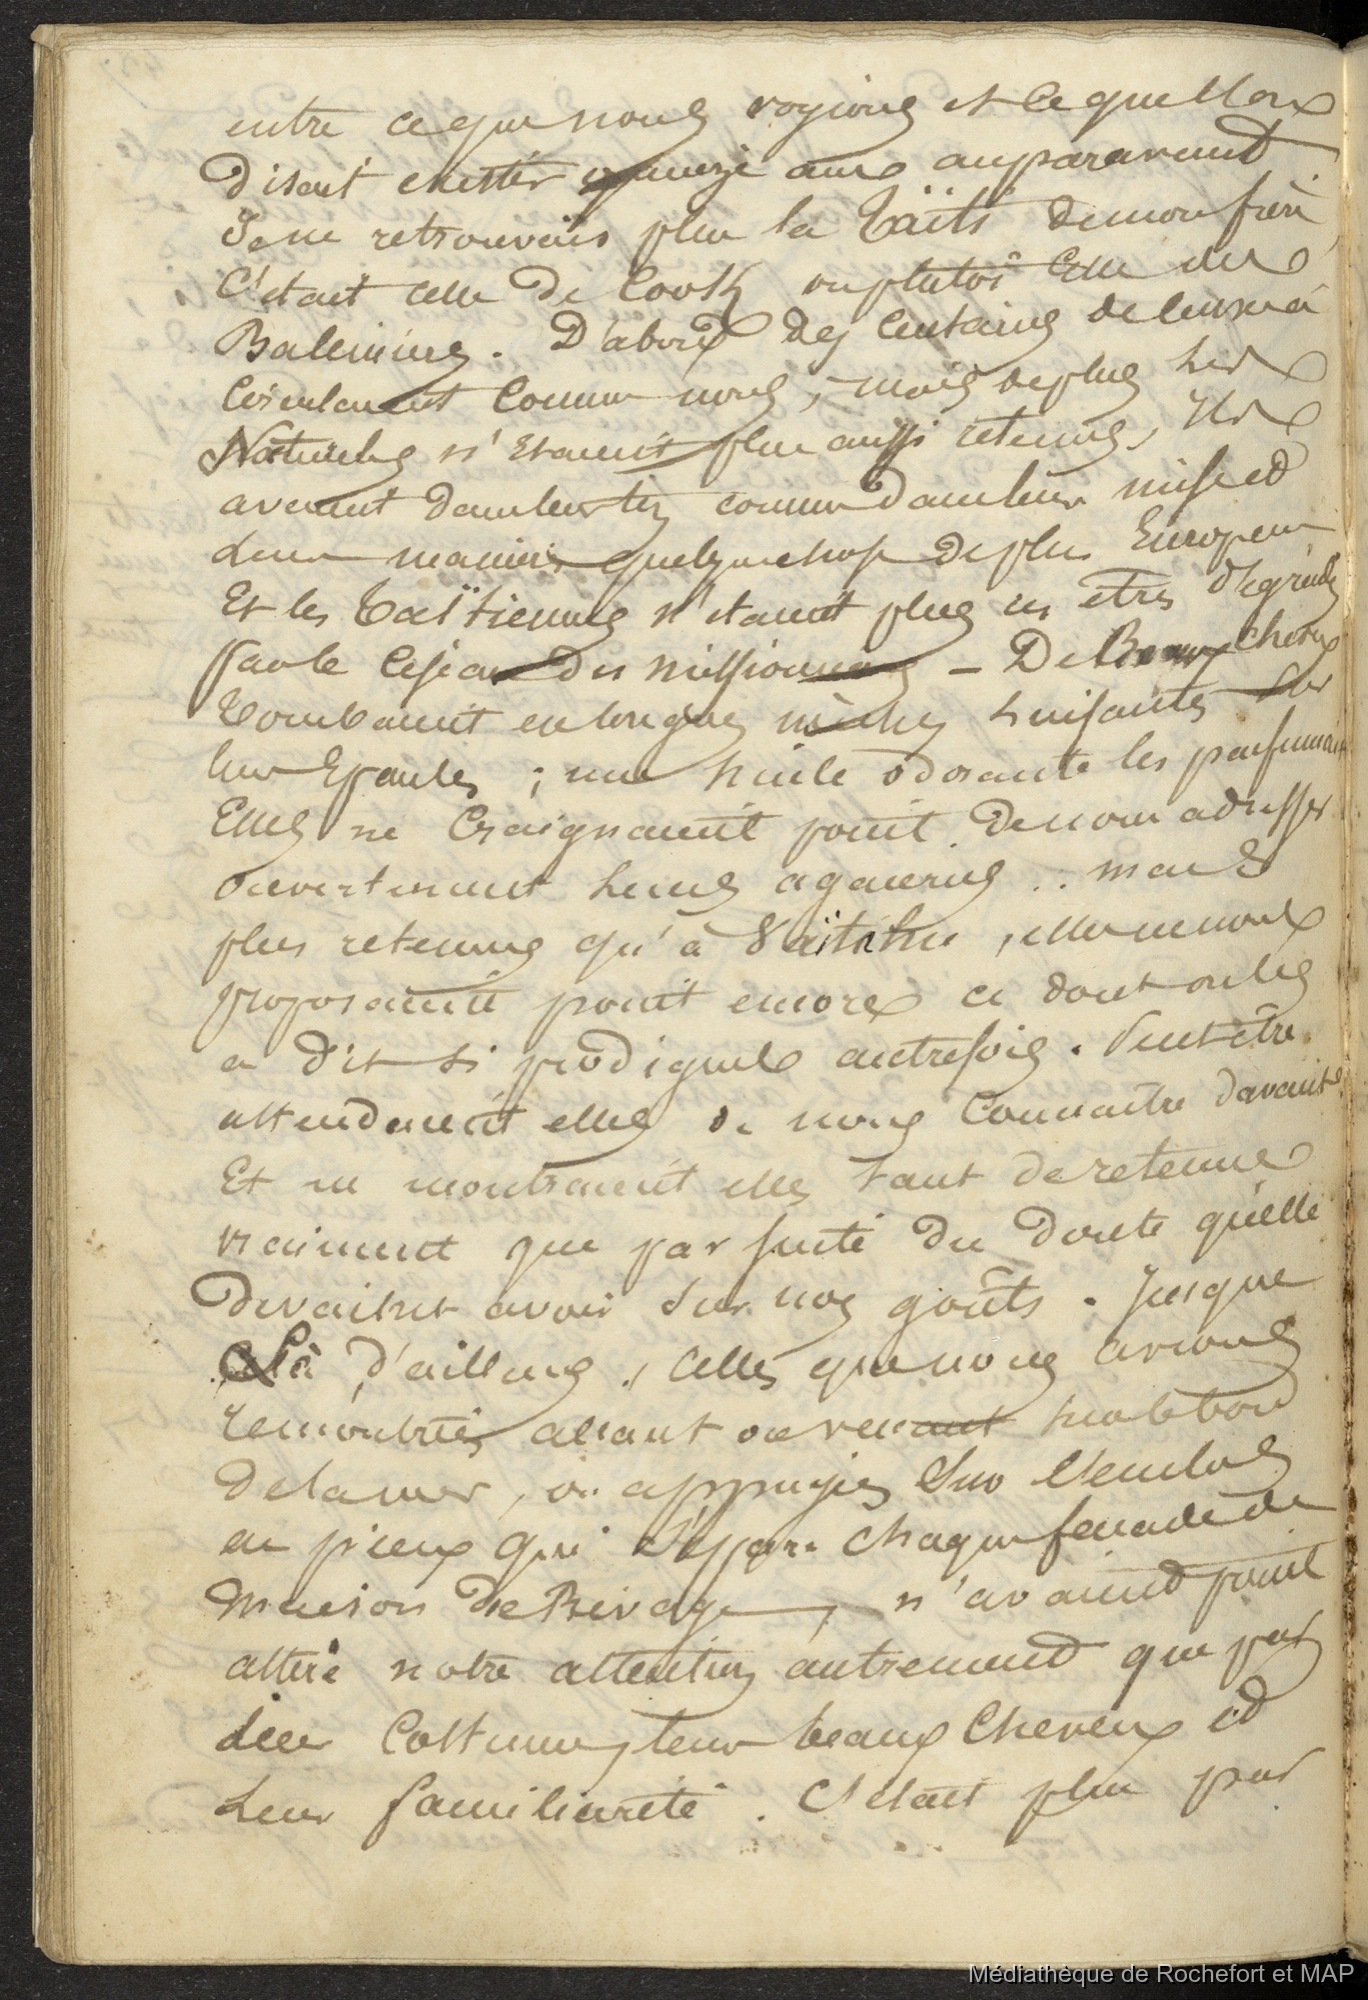 entre ce que nous voyions et ce que l'on
disait exister quinze ans auparavant
Je ne retrouvais plus la Taïti de mon frère,
C'etait celle de Cook ou plutôt celle des
Baleiniers. D'abord des centaines de
circulaient comme nous, mais de plus les
Naturels n'etaient plus aussi retenus, Ils
avaient dans leur comme dans leur mise et
leur maniere quelque chose de plus Européen
Et les Taïtiennes n'étaient plus ces êtres dégradés
par le ciseau des missionnaires – De Beaux cheveux
tombaient en longues mèches luisantes sur
leurs Epaules ; une huile odorante les parfumait
Elles ne craignaient point de nous adresser
ouvertement leurs agaceries .. mais
plus retenues qu'à Vaïtahu, elles ne nous
proposaient point encore ce dont on les
a dit si prodigues autrefois. Peut être
attendaient elles de nous connaitre davantage
Et ne montraient elles tant de retenue
vraiment que par suite du doute qu'elles
devaient avoir sur nos goûts. Jusque
là d'ailleurs, celles que nous avions
rencontrées allant ou venant sur le bord
de la mer, ou appuyées sur l'enclos
en pieux qui sépare chaque facade de
maison du Rivage, n'avaient point
attiré notre attention autrement que par
leur Costume, leurs beaux cheveux et
leur familiarité. C'etait plus par
Médiathèque de Rochefort et MAP